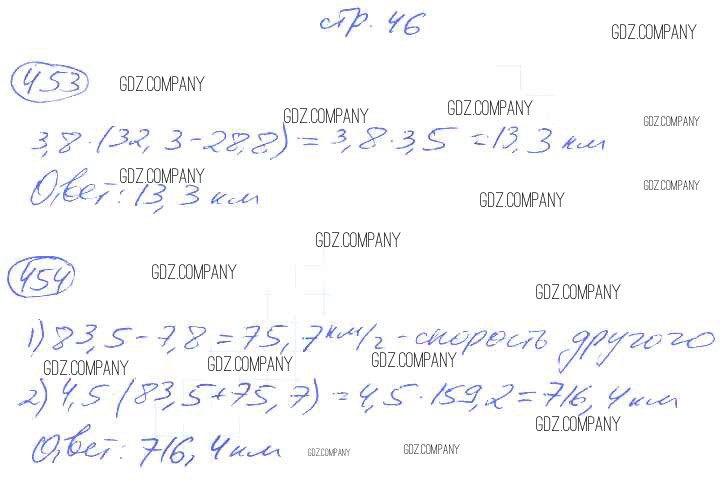 стр. 46
GDZ.COMPANY
453 GDZ.COMPANY
GDZ.COMPANY GDZ.COMPANY GDZ.COMPANY
3,8·(32,3-28,8)=3,8·3,5=13,3 км
GDZ.COMPANY GDZ.COMPANY
Ответ: 13,3 км GDZ.COMPANY
GDZ.COMPANY
454 GDZ.COMPANY GDZ.COMPANY
1) 83,5-7,8=75,7 км/г - скорость другого
GDZ.COMPANY GDZ.COMPANY GDZ.COMPANY
2) 4,5 (83,5+75,7)=4,5·159,2=716,4 км
GDZ.COMPANY
Ответ: 716,4 км GDZ.COMPANY GDZ.COMPANY